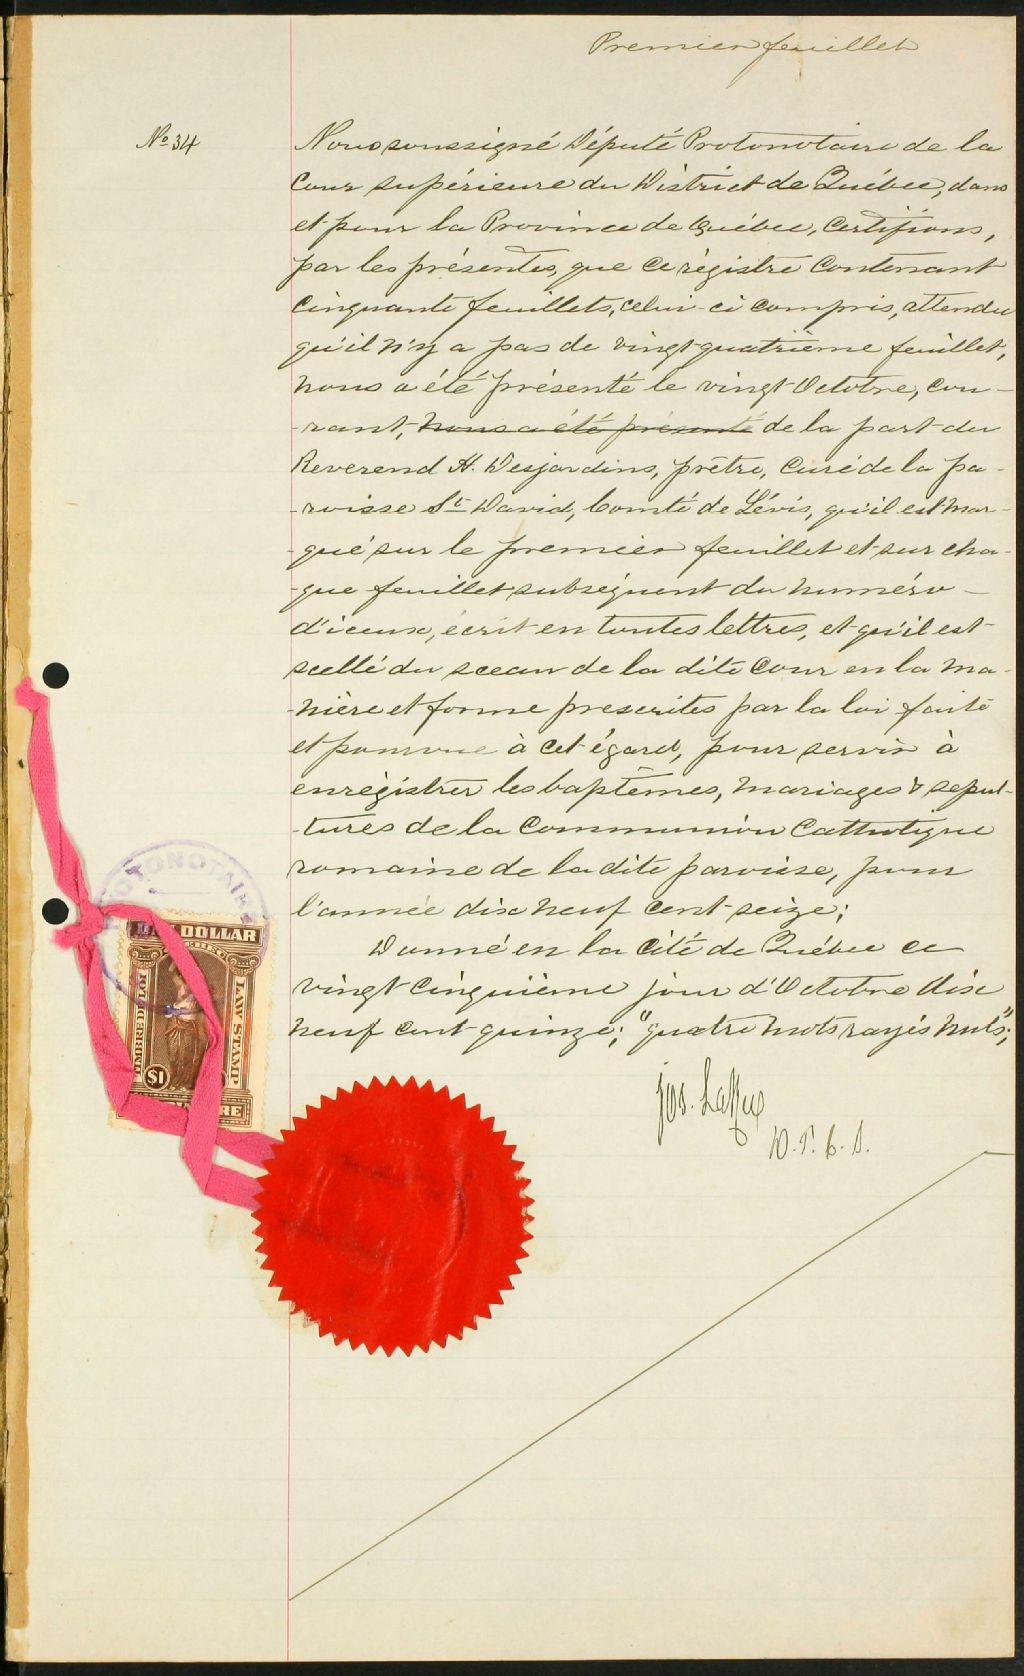 Premier feuillet
No 34
Nous soussigné Député Protonotaire de la
Cour supérieure du District de Québec, dans
et pour la Province de Québec, Certifions,
par les présentes, que ce régistre contenant
cinquante feuillets, celui-ci compris, attendu
qu'il n'y a pas de vingt-quatrième feuillet,
nous a été présenté le vingt Octobre, cou-
-rant, nous a été présenté de la part du
Reverend H. Desjardins, prêtre, Curé de la pa-
-roisse St David, Comté de Lévis, qu'il est mar-
-qué sur le premier feuillet et sur cha-
-que feuillet subséquent du numéro
d'iceux, écrit en toutes lettres, et qu'il est
scellé du sceau de la dite Cour en la ma-
-nière et forme prescrites par la loi faite
et pourvue à cet égard, pour servir à
enrégistrer les baptêmes, mariages & sepul-
-tures de la Communion Catholique
romaine de la dite paroisse, pour
l'année dix neuf cent-seize;
Donné en la Cité de Québec ce
vingt cinquième jour d'Octobre dix
neuf cent-quinze; "quatre mots rayés nuls";
Jos.
D. P. C. S.
PROTONOTAIRE
DOLLAR
QUEBEC
TIMBRE DE LOI
LAW STAMP
$1